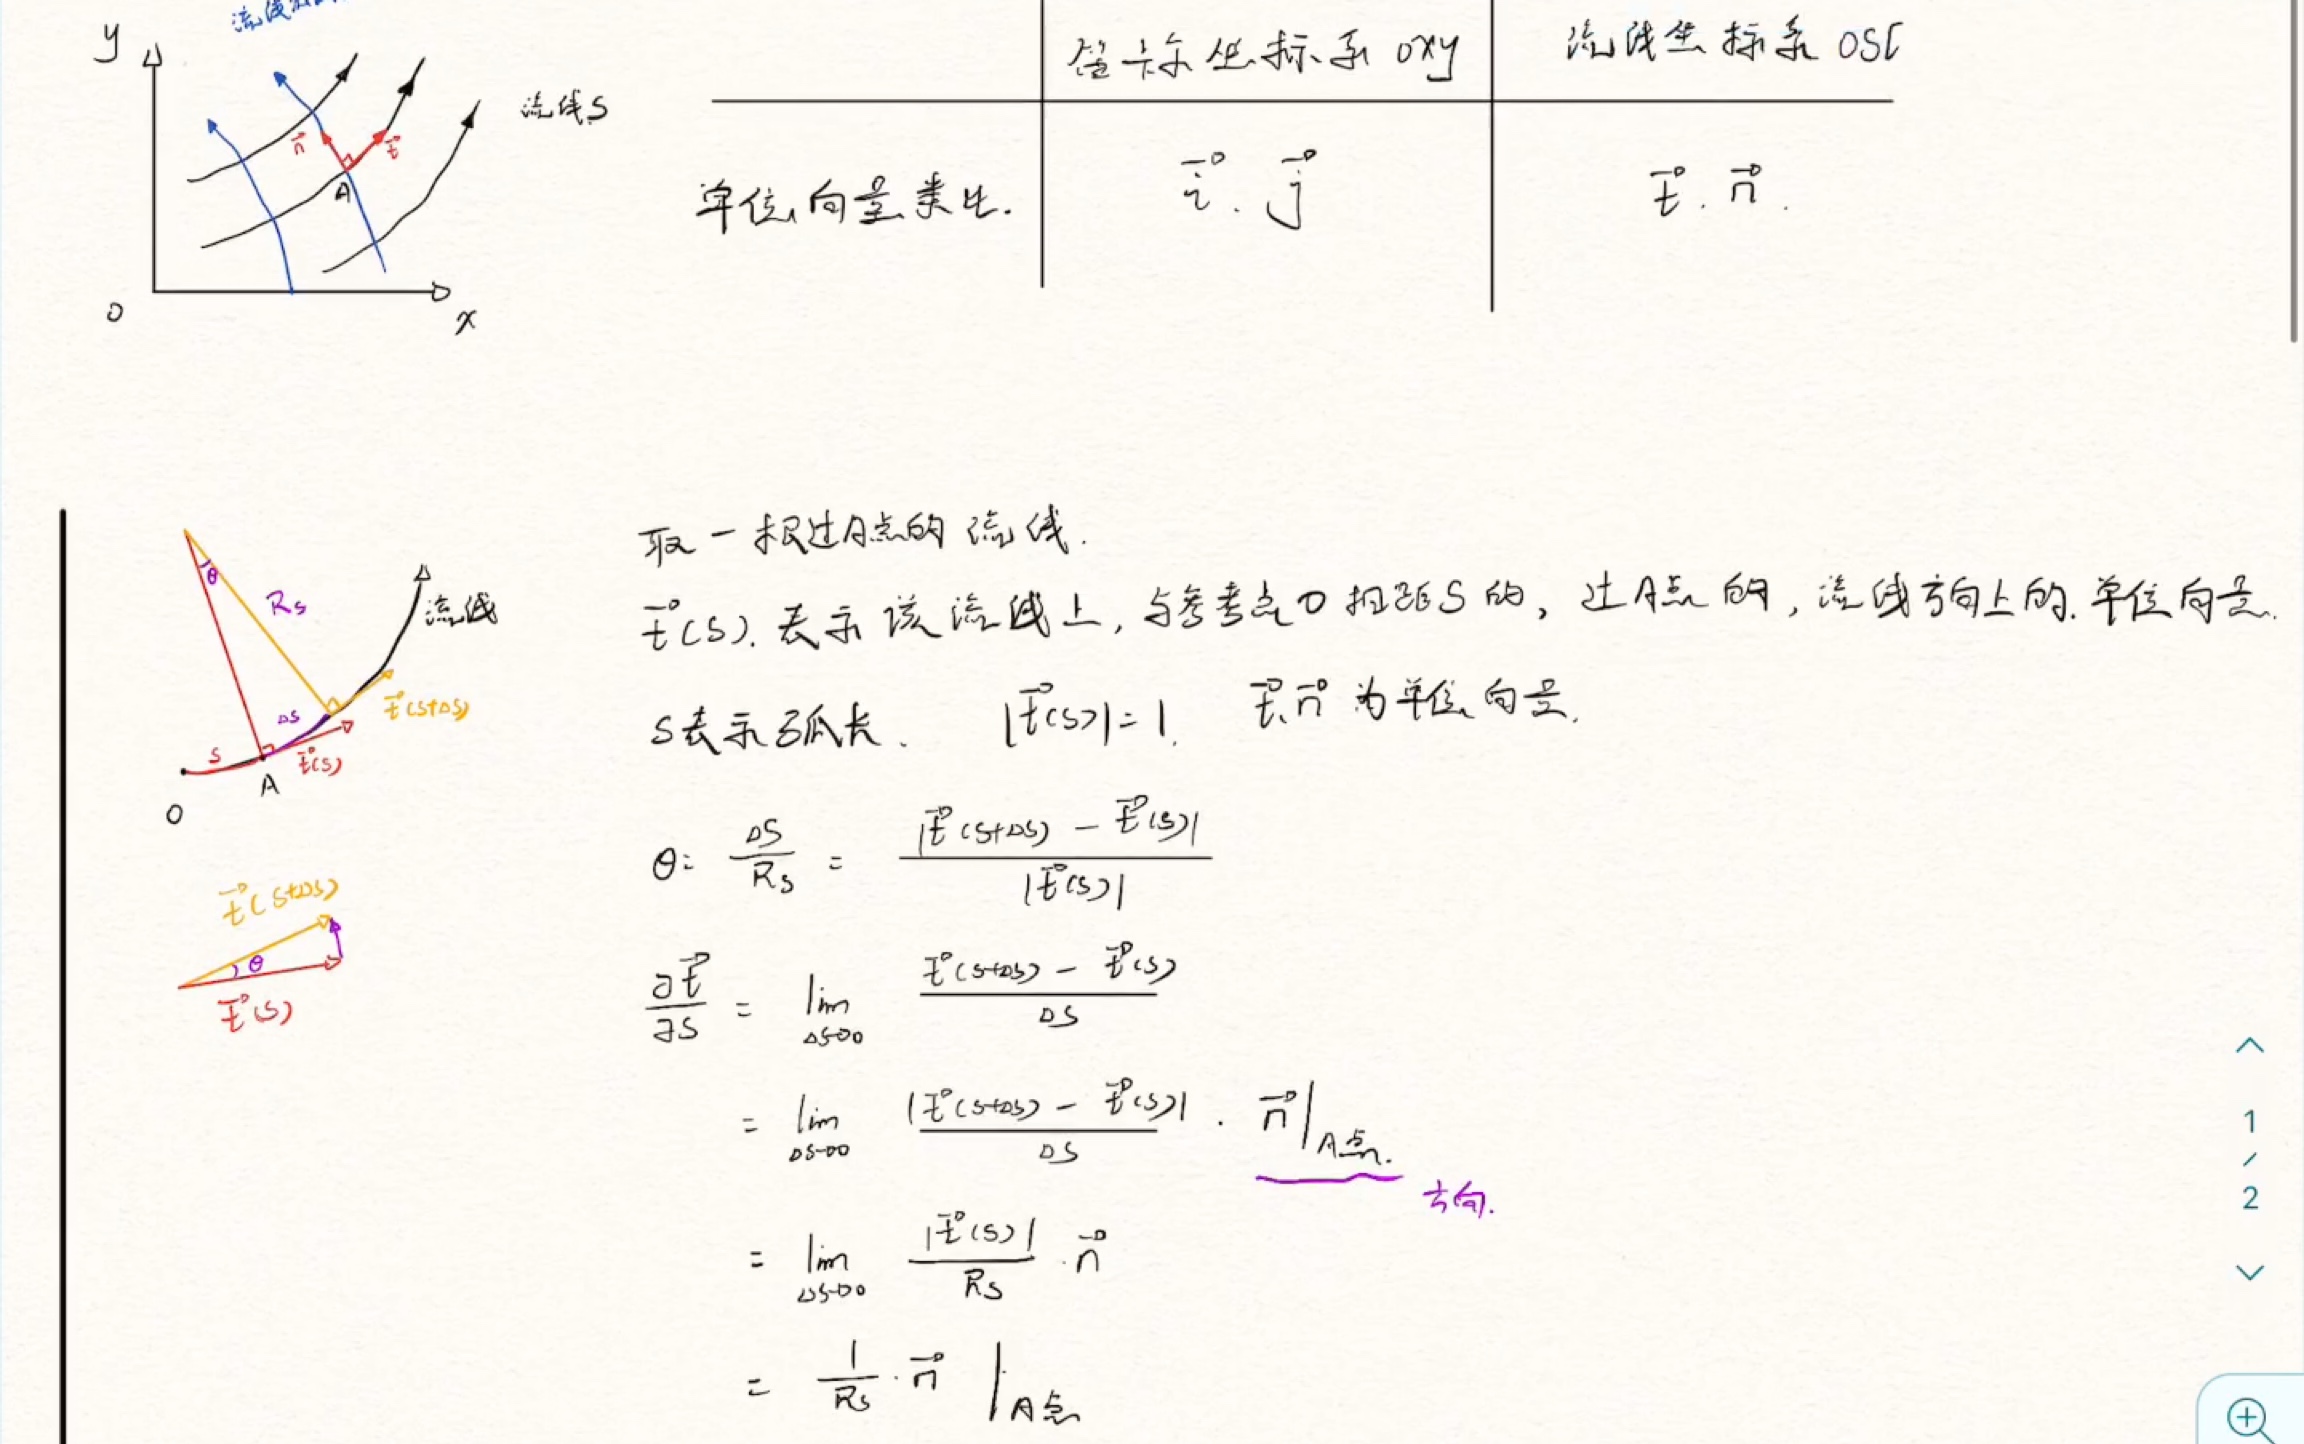 y
流线
流线S
n⃗
t⃗
A
O
x
笛卡尔坐标系 oxy
流线坐标系 OS
单位向量类比.
i⃗ . j⃗
t⃗ . n⃗ .
θ
Rs
流线
ΔS
t⃗(S+ΔS)
S
t⃗(S)
A
O
t⃗(S+ΔS)
θ
t⃗(S)
取一根过A点的流线.
t⃗(S). 表示该流线上, 与参考点O相距S的, 过A点的, 流线方向上的.单位向量.
S表示弧长. |t⃗(S)|=1. t⃗.n⃗ 为单位向量.
θ= ΔS/Rs = |t⃗(S+ΔS) - t⃗(S)| / |t⃗(S)|
∂t⃗/∂S = lim ΔS→0 (t⃗(S+ΔS) - t⃗(S)) / ΔS
= lim ΔS→0 |t⃗(S+ΔS) - t⃗(S)| / ΔS · n⃗ |A点.
方向.
= lim ΔS→0 |t⃗(S)| / Rs · n⃗
= 1/Rs · n⃗ |A点
1
/
2